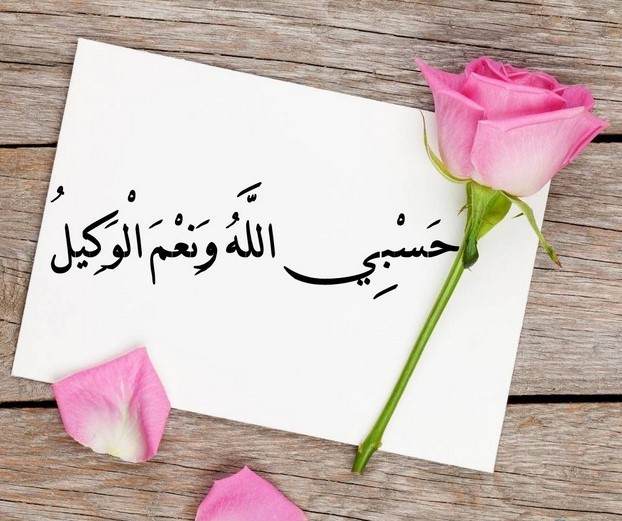 حَسْبِي اللَّهُ وَنَعْمَ الْوَكِيلُ